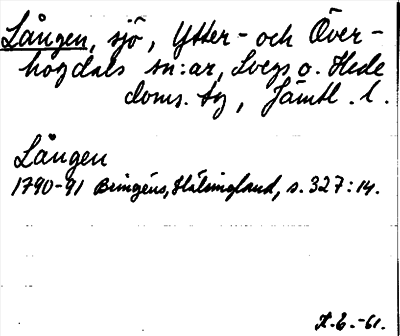 Lången, sjö, Ytter- och Över-
hogdals sn:ar, Svegs o. Hede
doms. tg, Jämtl. l.
Lången
1790-91 Bringéus, Hälsingland, s. 327:14.
H.E.-61.